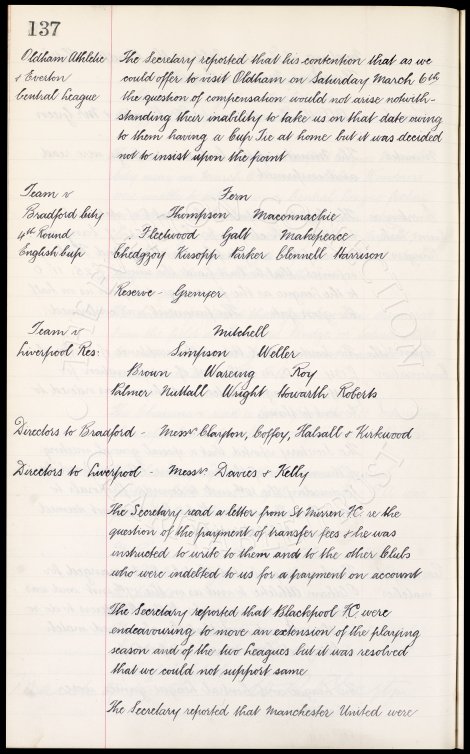 137
Oldham Athletic The Secretary reported that his contention that as we
v Everton could offer to visit Oldham on Saturday March 6th
Central League the question of compensation would not arise notwith-
standing their inability to take us on that date owing
to them having a Cup Tie at home but it was decided
not to insist upon the point
Team v Fern
Bradford City Thompson Maconnachie
4th Round Fleetwood Galt Makepeace
English Cup Chedgzoy Kirsopp Parker Clennell Harrison
Reserve - Grenyer
Team v Mitchell
Liverpool Res: Simpson Weller
Brown Wareing Roy
Palmer Nuttall Wright Howarth Roberts
Directors to Bradford - Messrs Clayton, Coffey, Halsall & Kirkwood
Directors to Liverpool - Messrs Davies & Kelly
The Secretary read a letter from St Mirren FC re the
question of the payment of transfer fees & he was
instructed to write to them and to the other Clubs
who were indebted to us for a payment on account
The Secretary reported that Blackpool FC were
endeavouring to move an extension of the playing
season and of the two Leagues but it was resolved
that we could not support same
The Secretary reported that Manchester United were